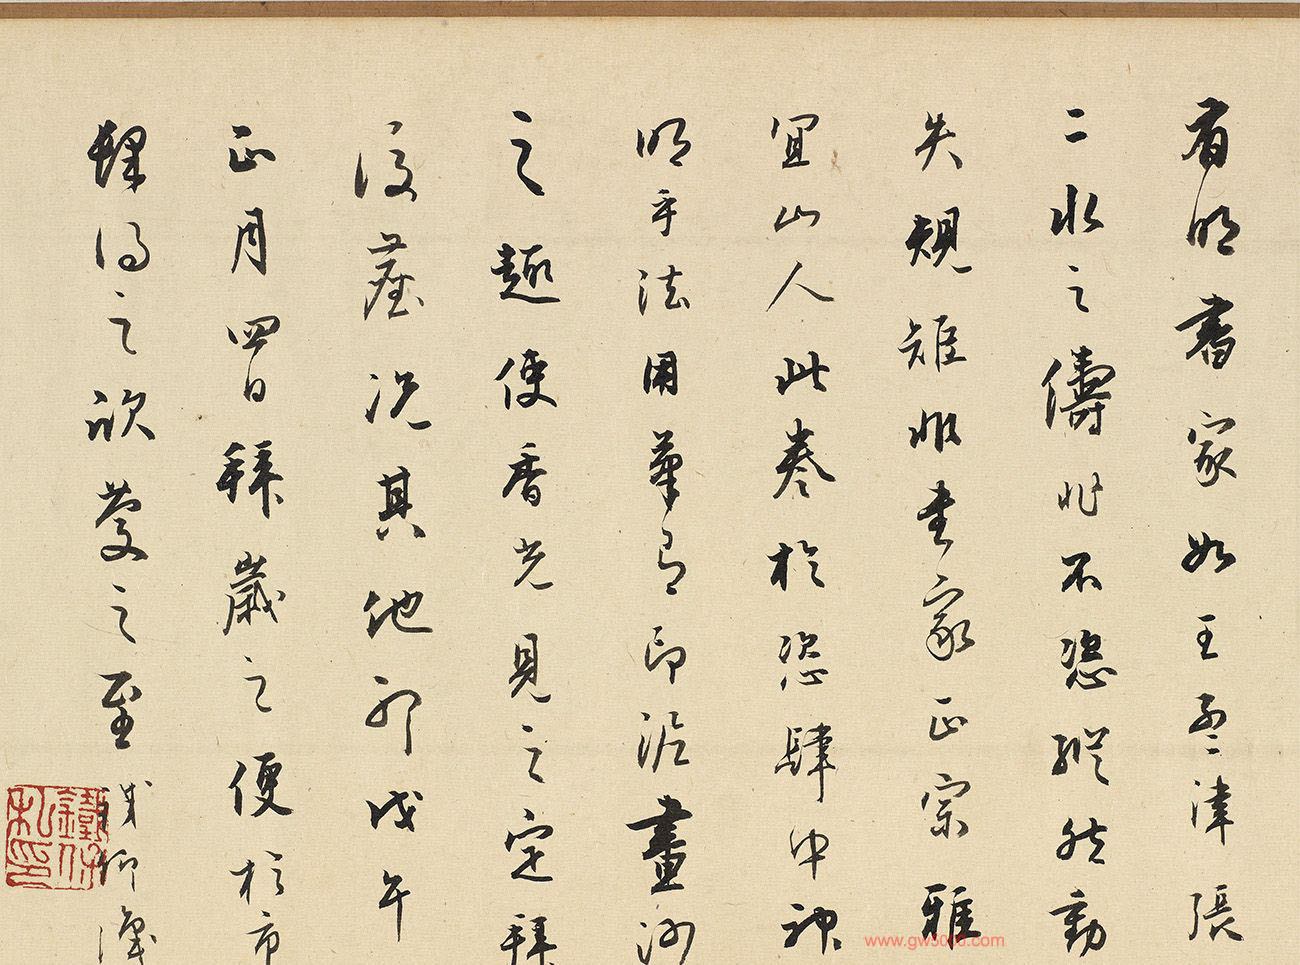 有明書家如王孟津張
二水之儔非不恣縱然動
失規矩非書家正宗雅
宜山人此卷於恣肆中神
明乎法用筆有印泥畫沙
之趣使香光見之定拜
後塵況其他耶戊午
正月四日拜歲之便於市
肆得之欣慶之至
鐵保私印
www.gw5000.com